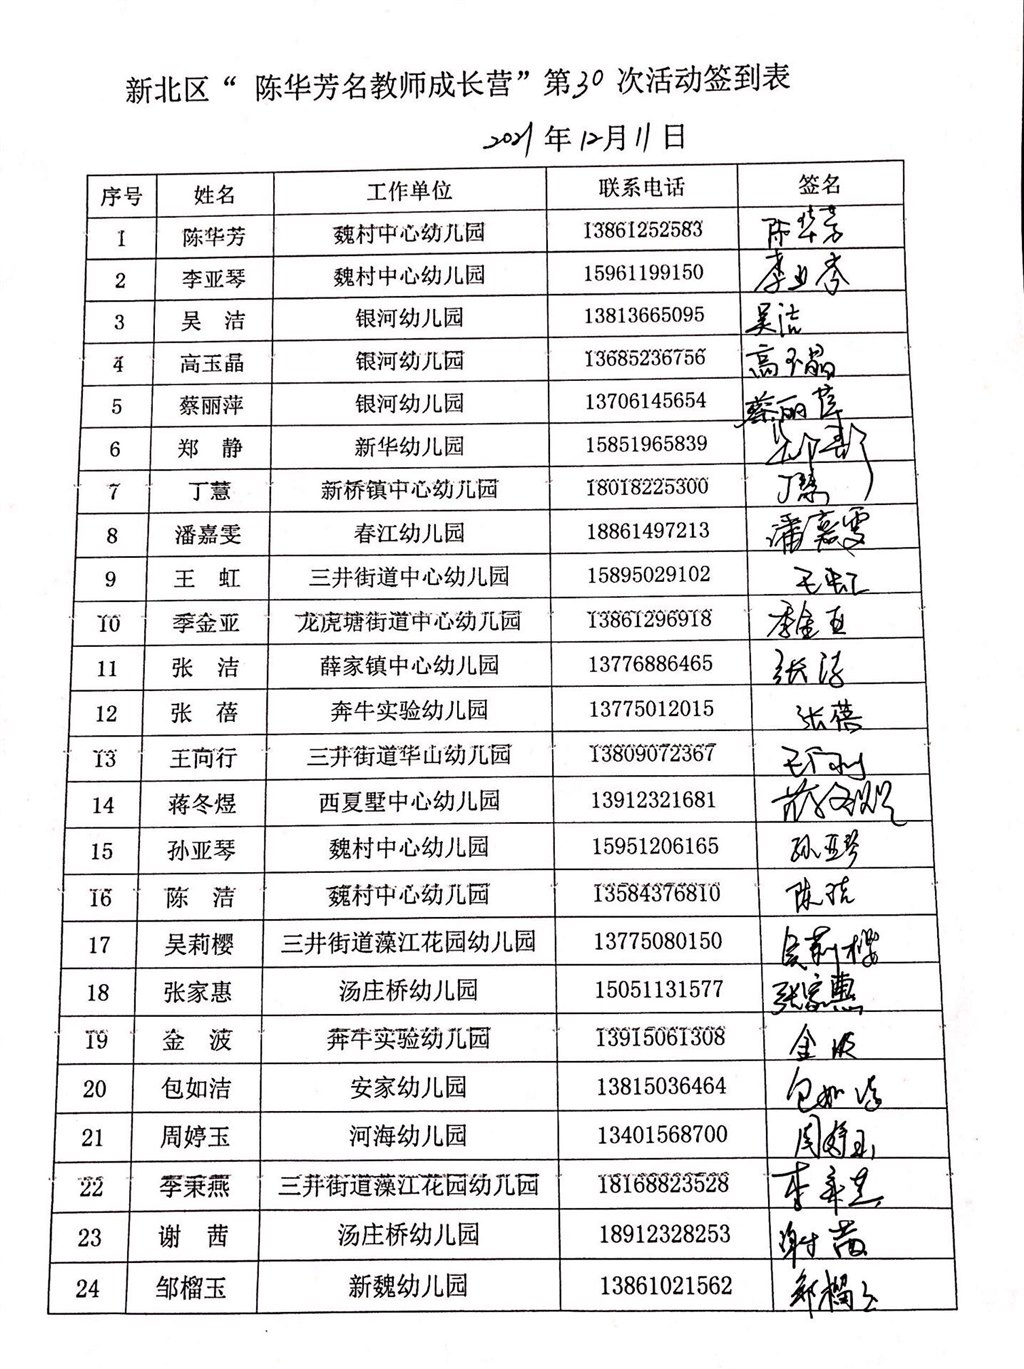 新北区“ 陈华芳名教师成长营”第30次活动签到表
2021年12月11日
序号 姓名 工作单位 联系电话 签名
1 陈华芳 魏村中心幼儿园 13861252583 陈华芳
2 李亚琴 魏村中心幼儿园 15961199150 李亚琴
3 吴 洁 银河幼儿园 13813665095 吴洁
4 高玉晶 银河幼儿园 13685236756 高玉晶
5 蔡丽萍 银河幼儿园 13706145654 蔡丽萍
6 郑 静 新华幼儿园 15851965839 郑静
7 丁慧 新桥镇中心幼儿园 18018225300 丁慧
8 潘嘉雯 春江幼儿园 18861497213 潘嘉雯
9 王 虹 三井街道中心幼儿园 15895029102 王虹
10 季金亚 龙虎塘街道中心幼儿园 13861296918 季金亚
11 张 洁 薛家镇中心幼儿园 13776886465 张洁
12 张 蓓 奔牛实验幼儿园 13775012015 张蓓
13 王向行 三井街道华山幼儿园 13809072367 王向行
14 蒋冬煜 西夏墅中心幼儿园 13912321681 蒋冬煜
15 孙亚琴 魏村中心幼儿园 15951206165 孙亚琴
16 陈 洁 魏村中心幼儿园 13584376810 陈洁
17 吴莉樱 三井街道藻江花园幼儿园 13775080150 吴莉樱
18 张家惠 汤庄桥幼儿园 15051131577 张家惠
19 金 波 奔牛实验幼儿园 13915061308 金波
20 包如洁 安家幼儿园 13815036464 包如洁
21 周婷玉 河海幼儿园 13401568700 周婷玉
22 李秉燕 三井街道藻江花园幼儿园 18168823528 李秉燕
23 谢 茜 汤庄桥幼儿园 18912328253 谢茜
24 邹榴玉 新魏幼儿园 13861021562 邹榴玉